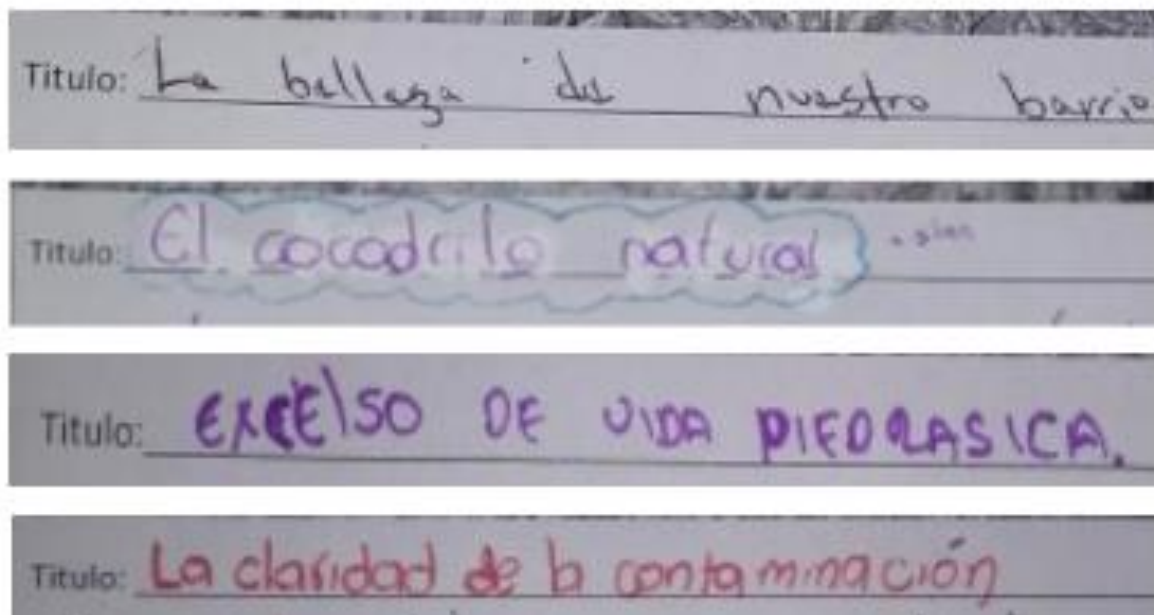 Titulo: La belleza de nuestro barrio
Titulo: El cocodrilo natural
Titulo: EXCElSO DE VIDA PIEDRASICA.
Titulo: La claridad de la contaminación